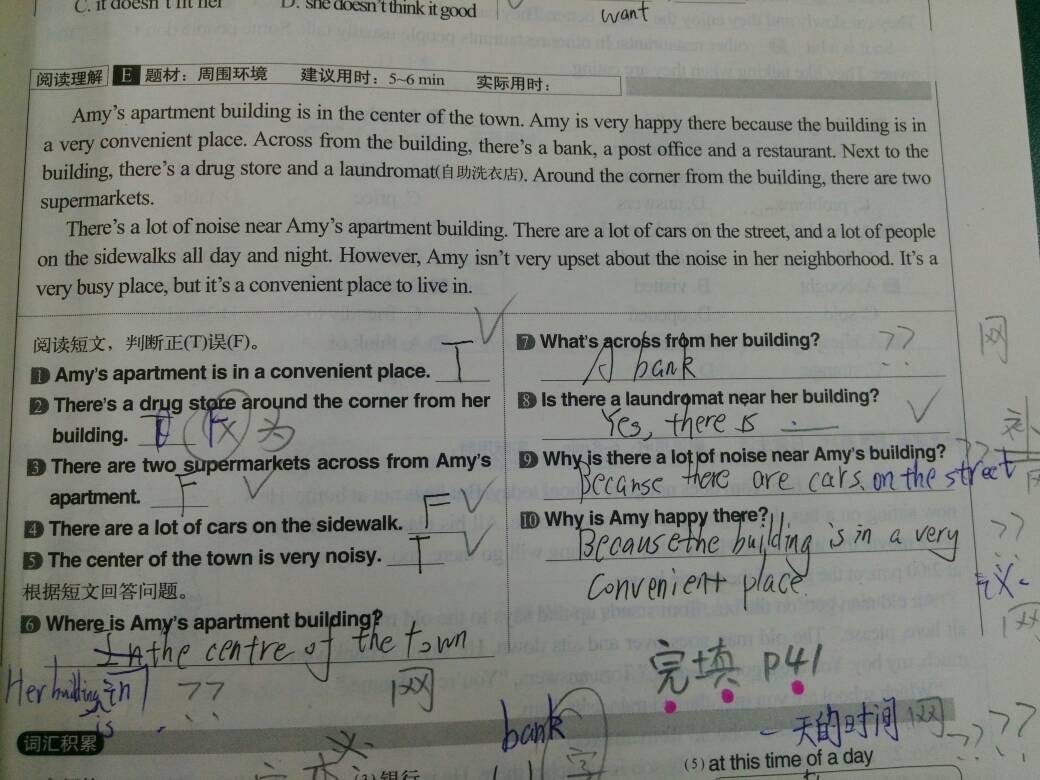 C. it doesn't fit her D. she doesn't think it good
want
阅读理解 E 题材：周围环境 建议用时：5~6 min 实际用时：
Amy's apartment building is in the center of the town. Amy is very happy there because the building is in
a very convenient place. Across from the building, there's a bank, a post office and a restaurant. Next to the
building, there's a drug store and a laundromat(自助洗衣店). Around the corner from the building, there are two
supermarkets.
There's a lot of noise near Amy's apartment building. There are a lot of cars on the street, and a lot of people
on the sidewalks all day and night. However, Amy isn't very upset about the noise in her neighborhood. It's a
very busy place, but it's a convenient place to live in.
阅读短文，判断正(T)误(F)。
1 Amy's apartment is in a convenient place. T
2 There's a drug store around the corner from her
building. F
3 There are two supermarkets across from Amy's
apartment. F
4 There are a lot of cars on the sidewalk. F
5 The center of the town is very noisy. T
根据短文回答问题。
6 Where is Amy's apartment building?
In the centre of the town
Her building is in
??
7 What's across from her building? ??
A bank
8 Is there a laundromat near her building?
Yes, there is.
9 Why is there a lot of noise near Amy's building? ??
Because there are cars. on the street
10 Why is Amy happy there? ??
Because the building is in a very
convenient place.
完填 P41
bank
一天的时间 ??
词汇积累
(3)银行
(5) at this time of a day